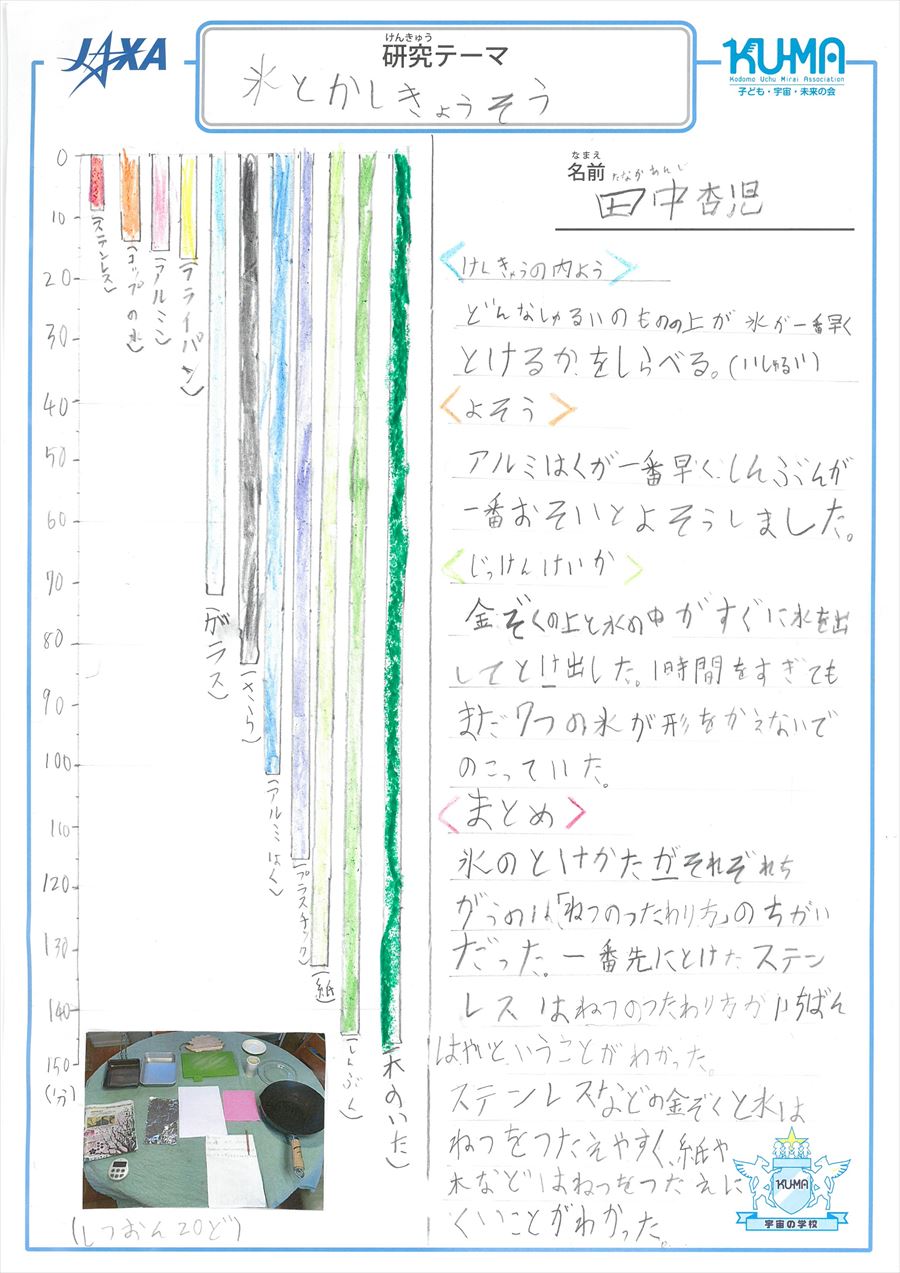 JAXA
けんきゅう
研究テーマ
氷とかしきょうそう
KU-MA
Kodomo Uchu Mirai Association
子ども・宇宙・未来の会
0
10
20
30
40
50
60
70
80
90
100
110
120
130
140
150
(分)
(ステンレス)
(コップの水)
(アルミン)
(フライパン)
(ガラス)
(さら)
(アルミはく)
(プラスチック)
(紙)
(しんぶん)
(木のいた)
(しつおん20ど)
なまえ
名前
田中杏児
<けんきゅうの内よう>
どんなしゅるいのものの上が 氷が一番早く
とけるかをしらべる。(11しゅるい)
<よそう>
アルミはくが一番早く、しんぶんが
一番おそいとよそうしました。
<じっけんけいか>
金ぞくの上と水の中がすぐに水を出
してとけ出した。1時間をすぎても
まだ7つの氷が形をかえないで
のこっていた。
<まとめ>
氷のとけかたがそれぞれち
がうのは「ねつのつたわり方」のちがい
だった。一番先にとけたステン
レスはねつのつたわり方がいちばん
はやいということがわかった。
ステンレスなどの金ぞくと水は
ねつをつたえやすく、紙や
木などはねつをつたえに
くいことがわかった。
KU-MA
宇宙の学校